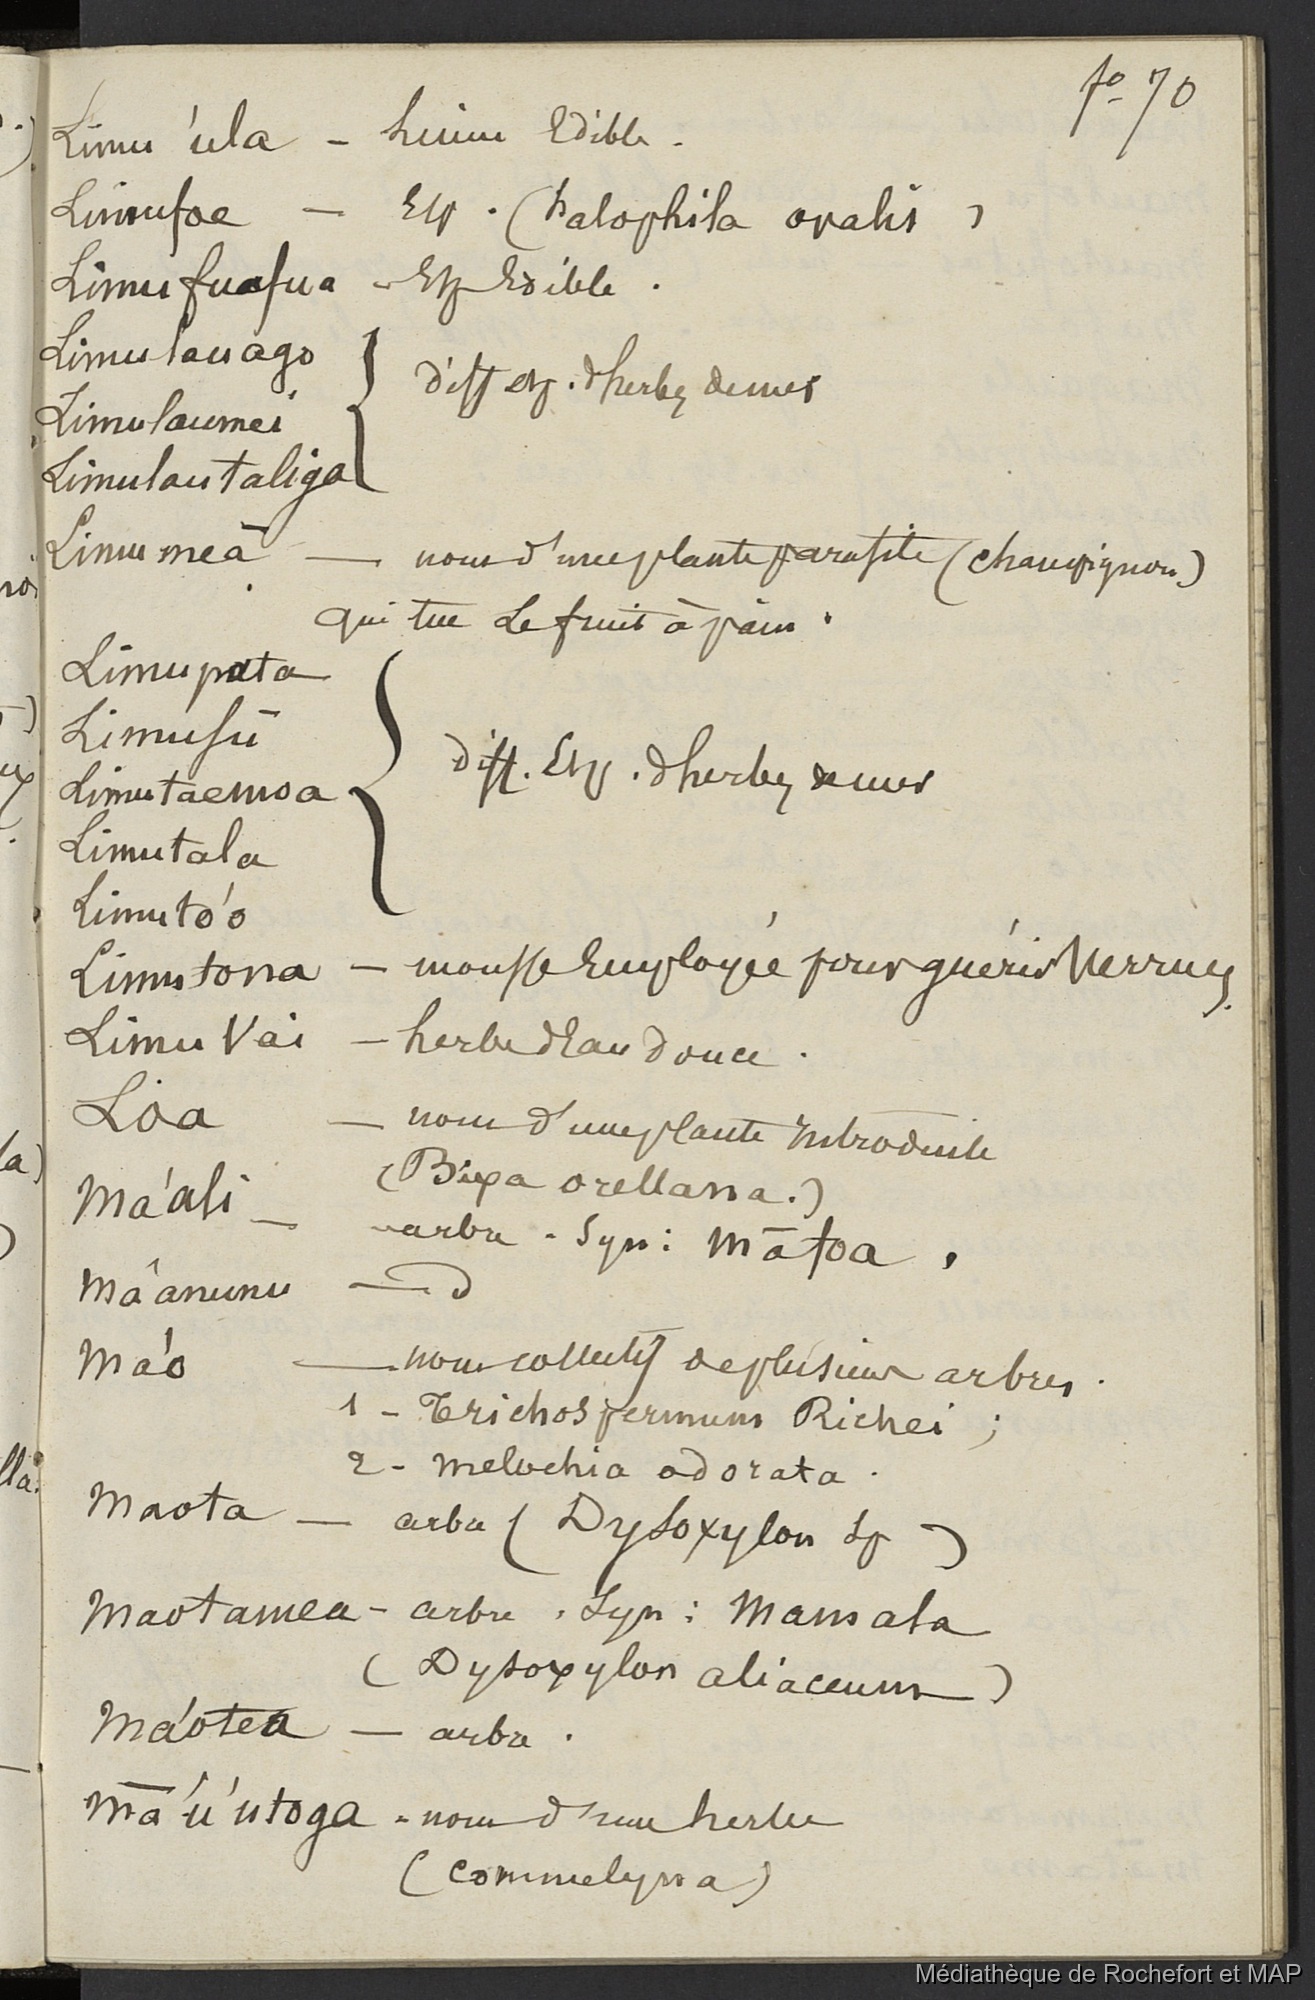 fo 70
Limu 'ula - Limu Edible.
Limufoe — Esp. (halophila ovalis)
Limu fuafua - Esp Edible.
Limulauago
Limulaumei
Limulautaliga
} diff esp. d'herbes de mer
Limu meā — nom d'une plante parasite (champignon)
qui tue le fruit à pain.
Limupata
Limusū
Limutaemoa
Limutala
Limutó'o
} diff. Esp. d'herbes de mer
Limutona — mousse Employée pour guérir Verrues.
Limu Vai — herbe d'Eau douce.
Loa — nom d'une plante Introduite
(Bixa orellana.)
Ma'ali — arbre. Syn: Māfoa.
Ma'anunu — d
Ma'o — nom collectif de plusieurs arbres.
1 - Trichospermum Richei ;
2 - melochia odorata.
Maota — arbre (Dysoxylon sp)
Maotamea - arbre. Syn: Mamala
(Dysoxylon aliaceum)
Ma'otea — arbre.
Mā'u'utoga - nom d'une herbe
(commelyna)
Médiathèque de Rochefort et MAP